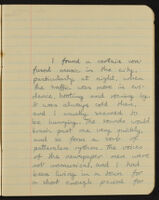 I found a certain con
fused music in the city,
particularly at night, when
the traffic was more in evi-
dence, hooting and roaring by.
It was always cold then,
and I usually seemed to
be hurrying. The sounds would
brush past me very quickly,
and so form a sort of
patternless rhythm. The voices
of the newspaper men were
not unmusical, and I had
been living in a town for
a short enough period for